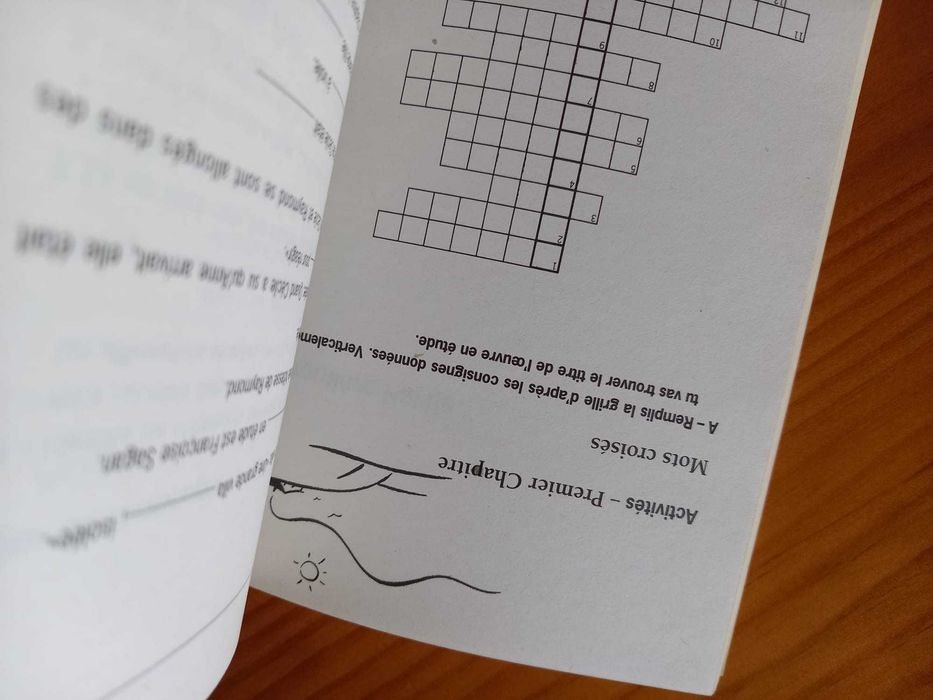 Activités – Premier Chapitre
Mots croisés
A – Remplis la grille d'après les consignes données. Verticaleme
tu vas trouver le titre de l'œuvre en étude.
1
2
3
4
5
6
7
8
9
10
11
12
isolée».
une grande villa
en étude est Françoise Sagan.
de Raymond.
Quand Cécile a su qu'Anne arrivait, elle était
et Raymond se sont allongés dans des